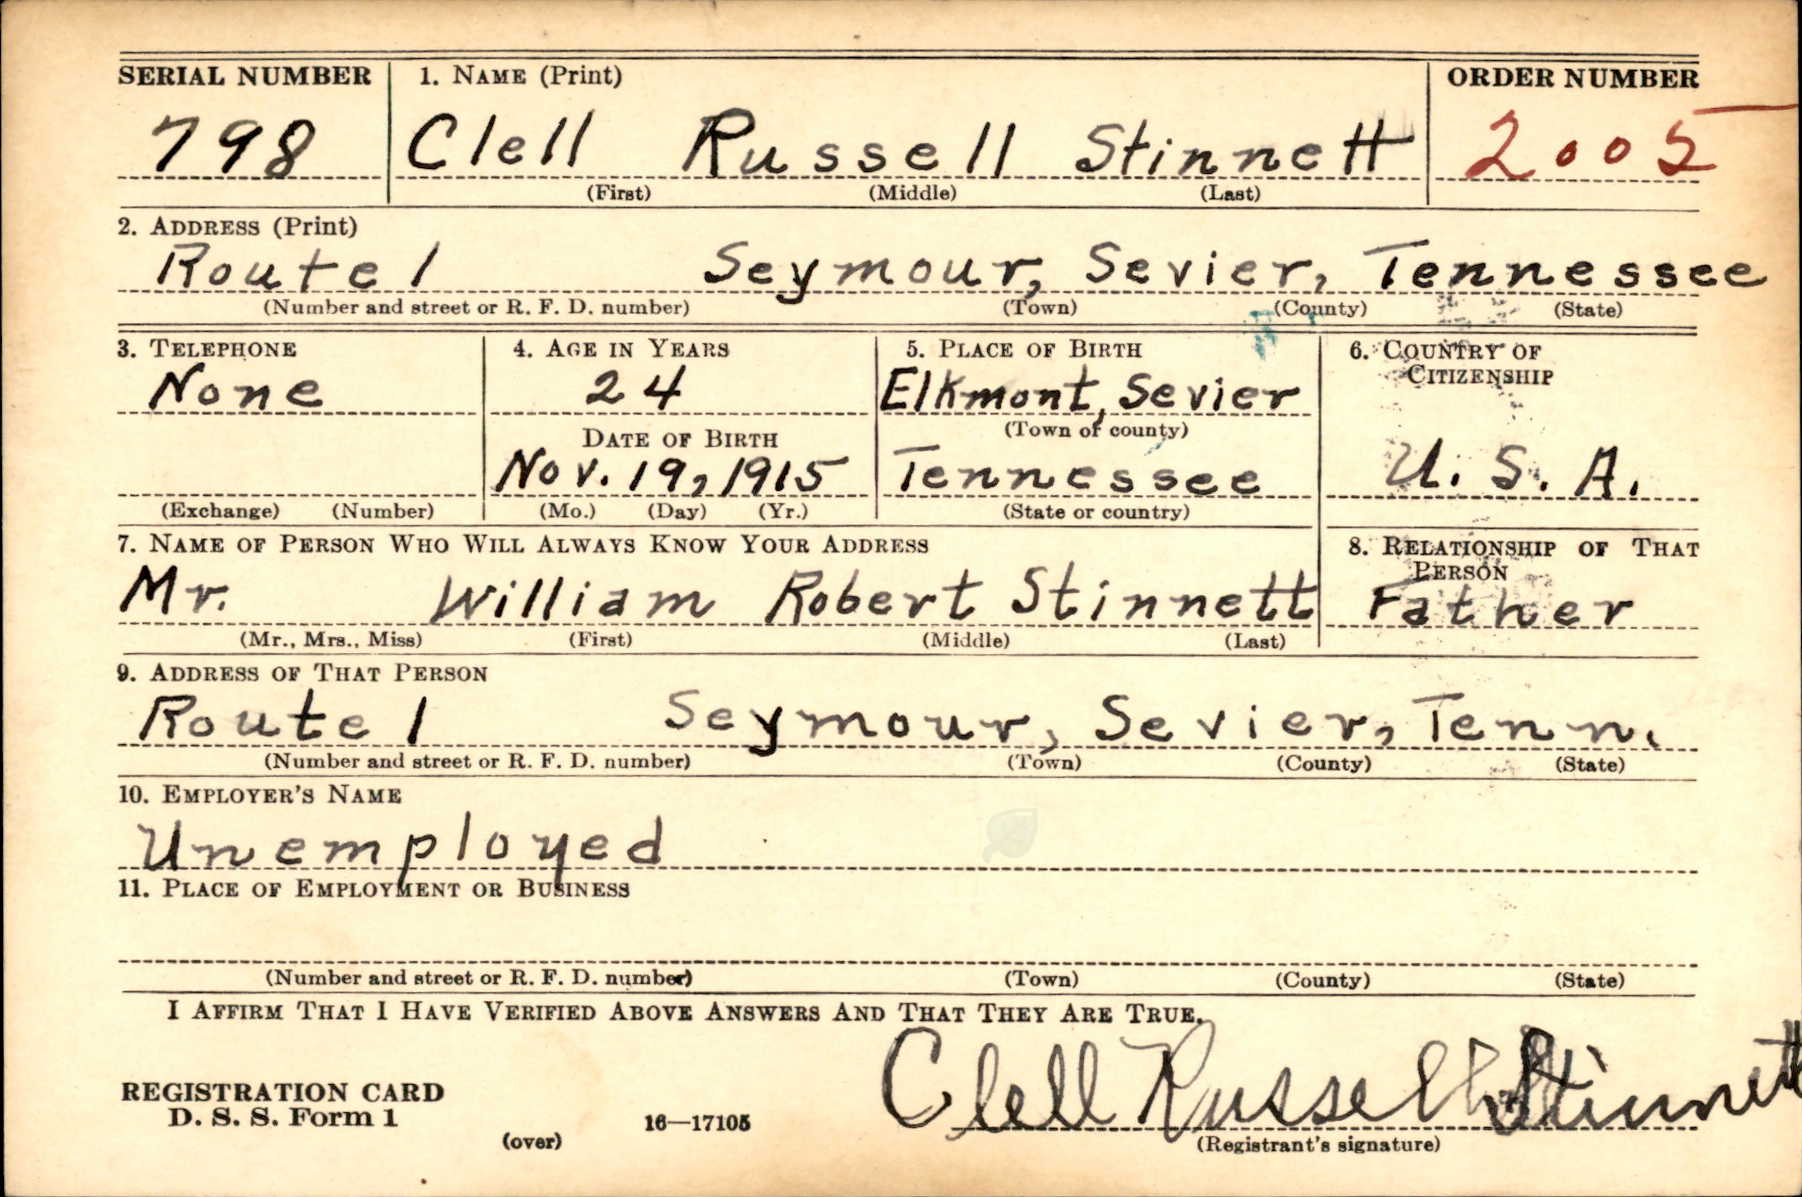 SERIAL NUMBER 1. NAME (Print) ORDER NUMBER
798 Clell Russell Stinnett 2005
(First) (Middle) (Last)
2. ADDRESS (Print)
Route 1 Seymour, Sevier, Tennessee
(Number and street or R. F. D. number) (Town) (County) (State)
3. TELEPHONE 4. AGE IN YEARS 5. PLACE OF BIRTH 6. COUNTRY OF
CITIZENSHIP
None 24 Elkmont, Sevier
DATE OF BIRTH (Town or county)
Nov. 19, 1915 Tennessee U. S. A.
(Exchange) (Number) (Mo.) (Day) (Yr.) (State or country)
7. NAME OF PERSON WHO WILL ALWAYS KNOW YOUR ADDRESS 8. RELATIONSHIP OF THAT
PERSON
Mr. William Robert Stinnett Father
(Mr., Mrs., Miss) (First) (Middle) (Last)
9. ADDRESS OF THAT PERSON
Route 1 Seymour, Sevier, Tenn.
(Number and street or R. F. D. number) (Town) (County) (State)
10. EMPLOYER'S NAME
Unemployed
11. PLACE OF EMPLOYMENT OR BUSINESS
(Number and street or R. F. D. number) (Town) (County) (State)
I AFFIRM THAT I HAVE VERIFIED ABOVE ANSWERS AND THAT THEY ARE TRUE.
Clell Russell Stinnett
REGISTRATION CARD
D. S. S. Form 1 16—17105
(over) (Registrant's signature)